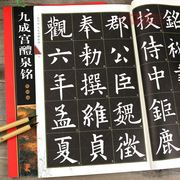 九成宫醴泉銘
校侍中鉅鹿
郡公臣魏徵
奉勅撰維貞
觀六年孟夏